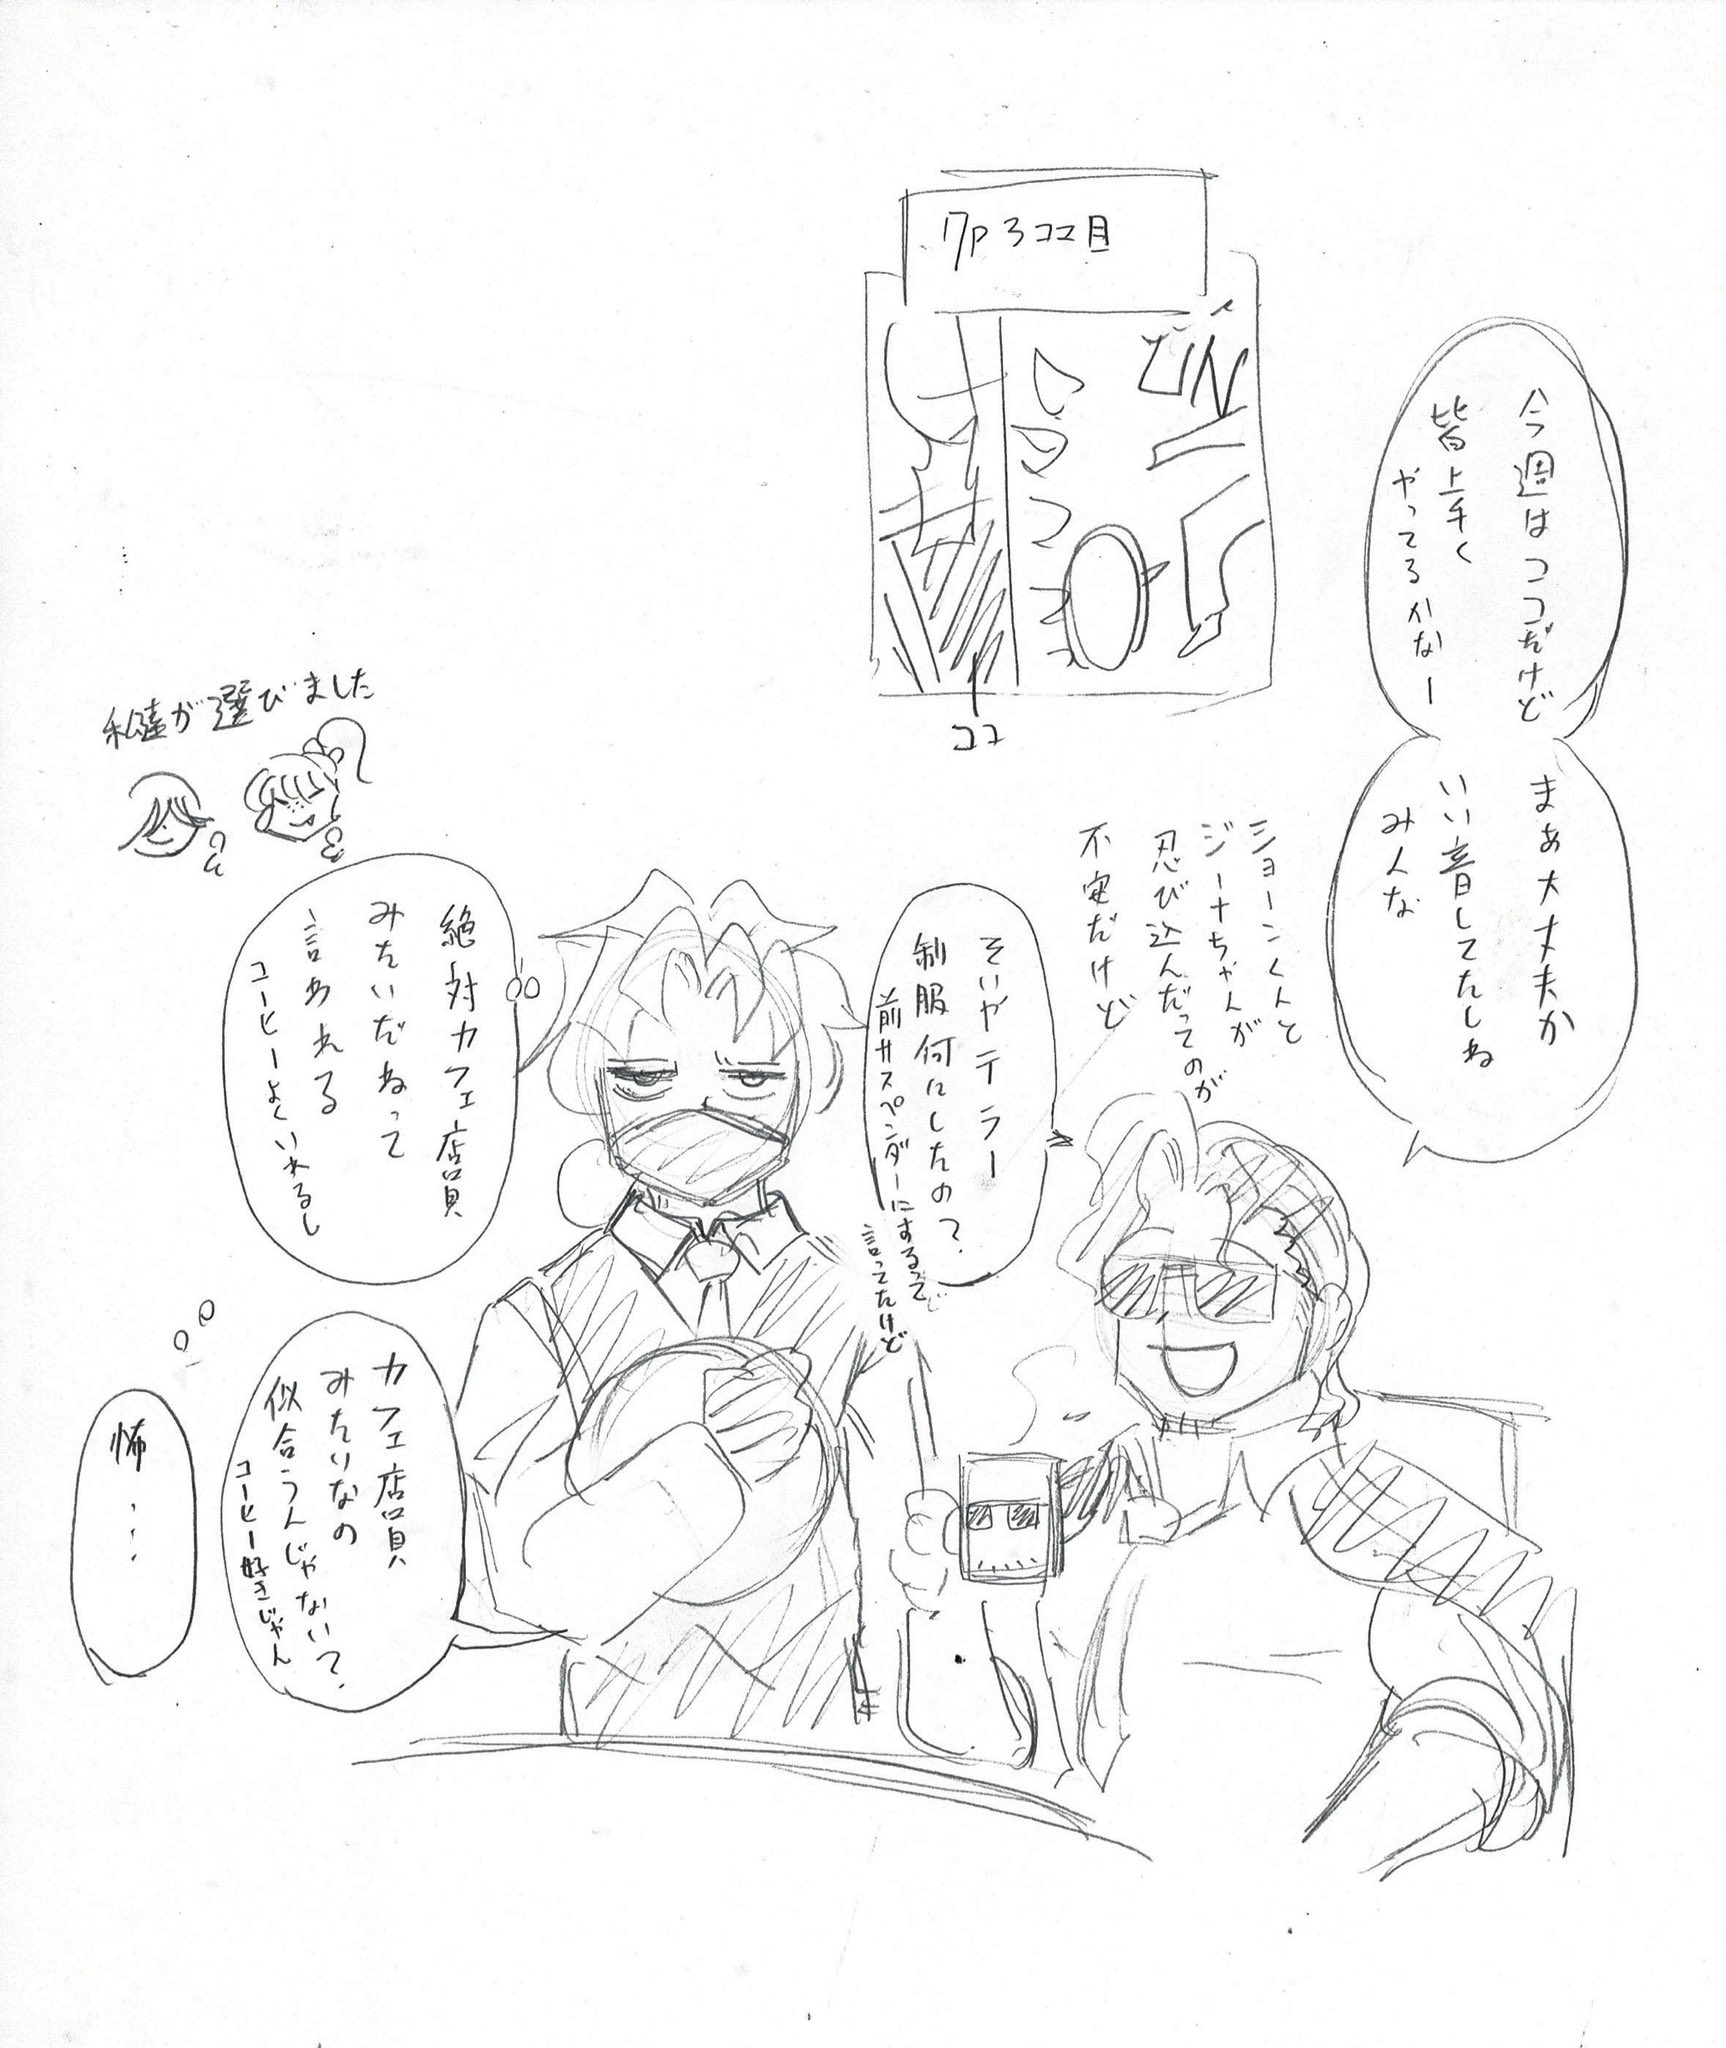 17p 3コマ目
ココ
今週はココだけど
皆上手く
やってるかなー
まぁ大丈夫か
いい音してたしね
みんな
ショーンくんと
ジーナちゃんが
忍び込んだってのが
不安だけど
そいやテイラー
制服何にしたの?
前サスペンダーにするって
言ってたけど
私達が選びました
絶対カフェ店員
みたいだねって
言われる
コーヒーよくいれるし
カフェ店員
みたいなの
似合うんじゃない?
コーヒー好きじゃん
怖...